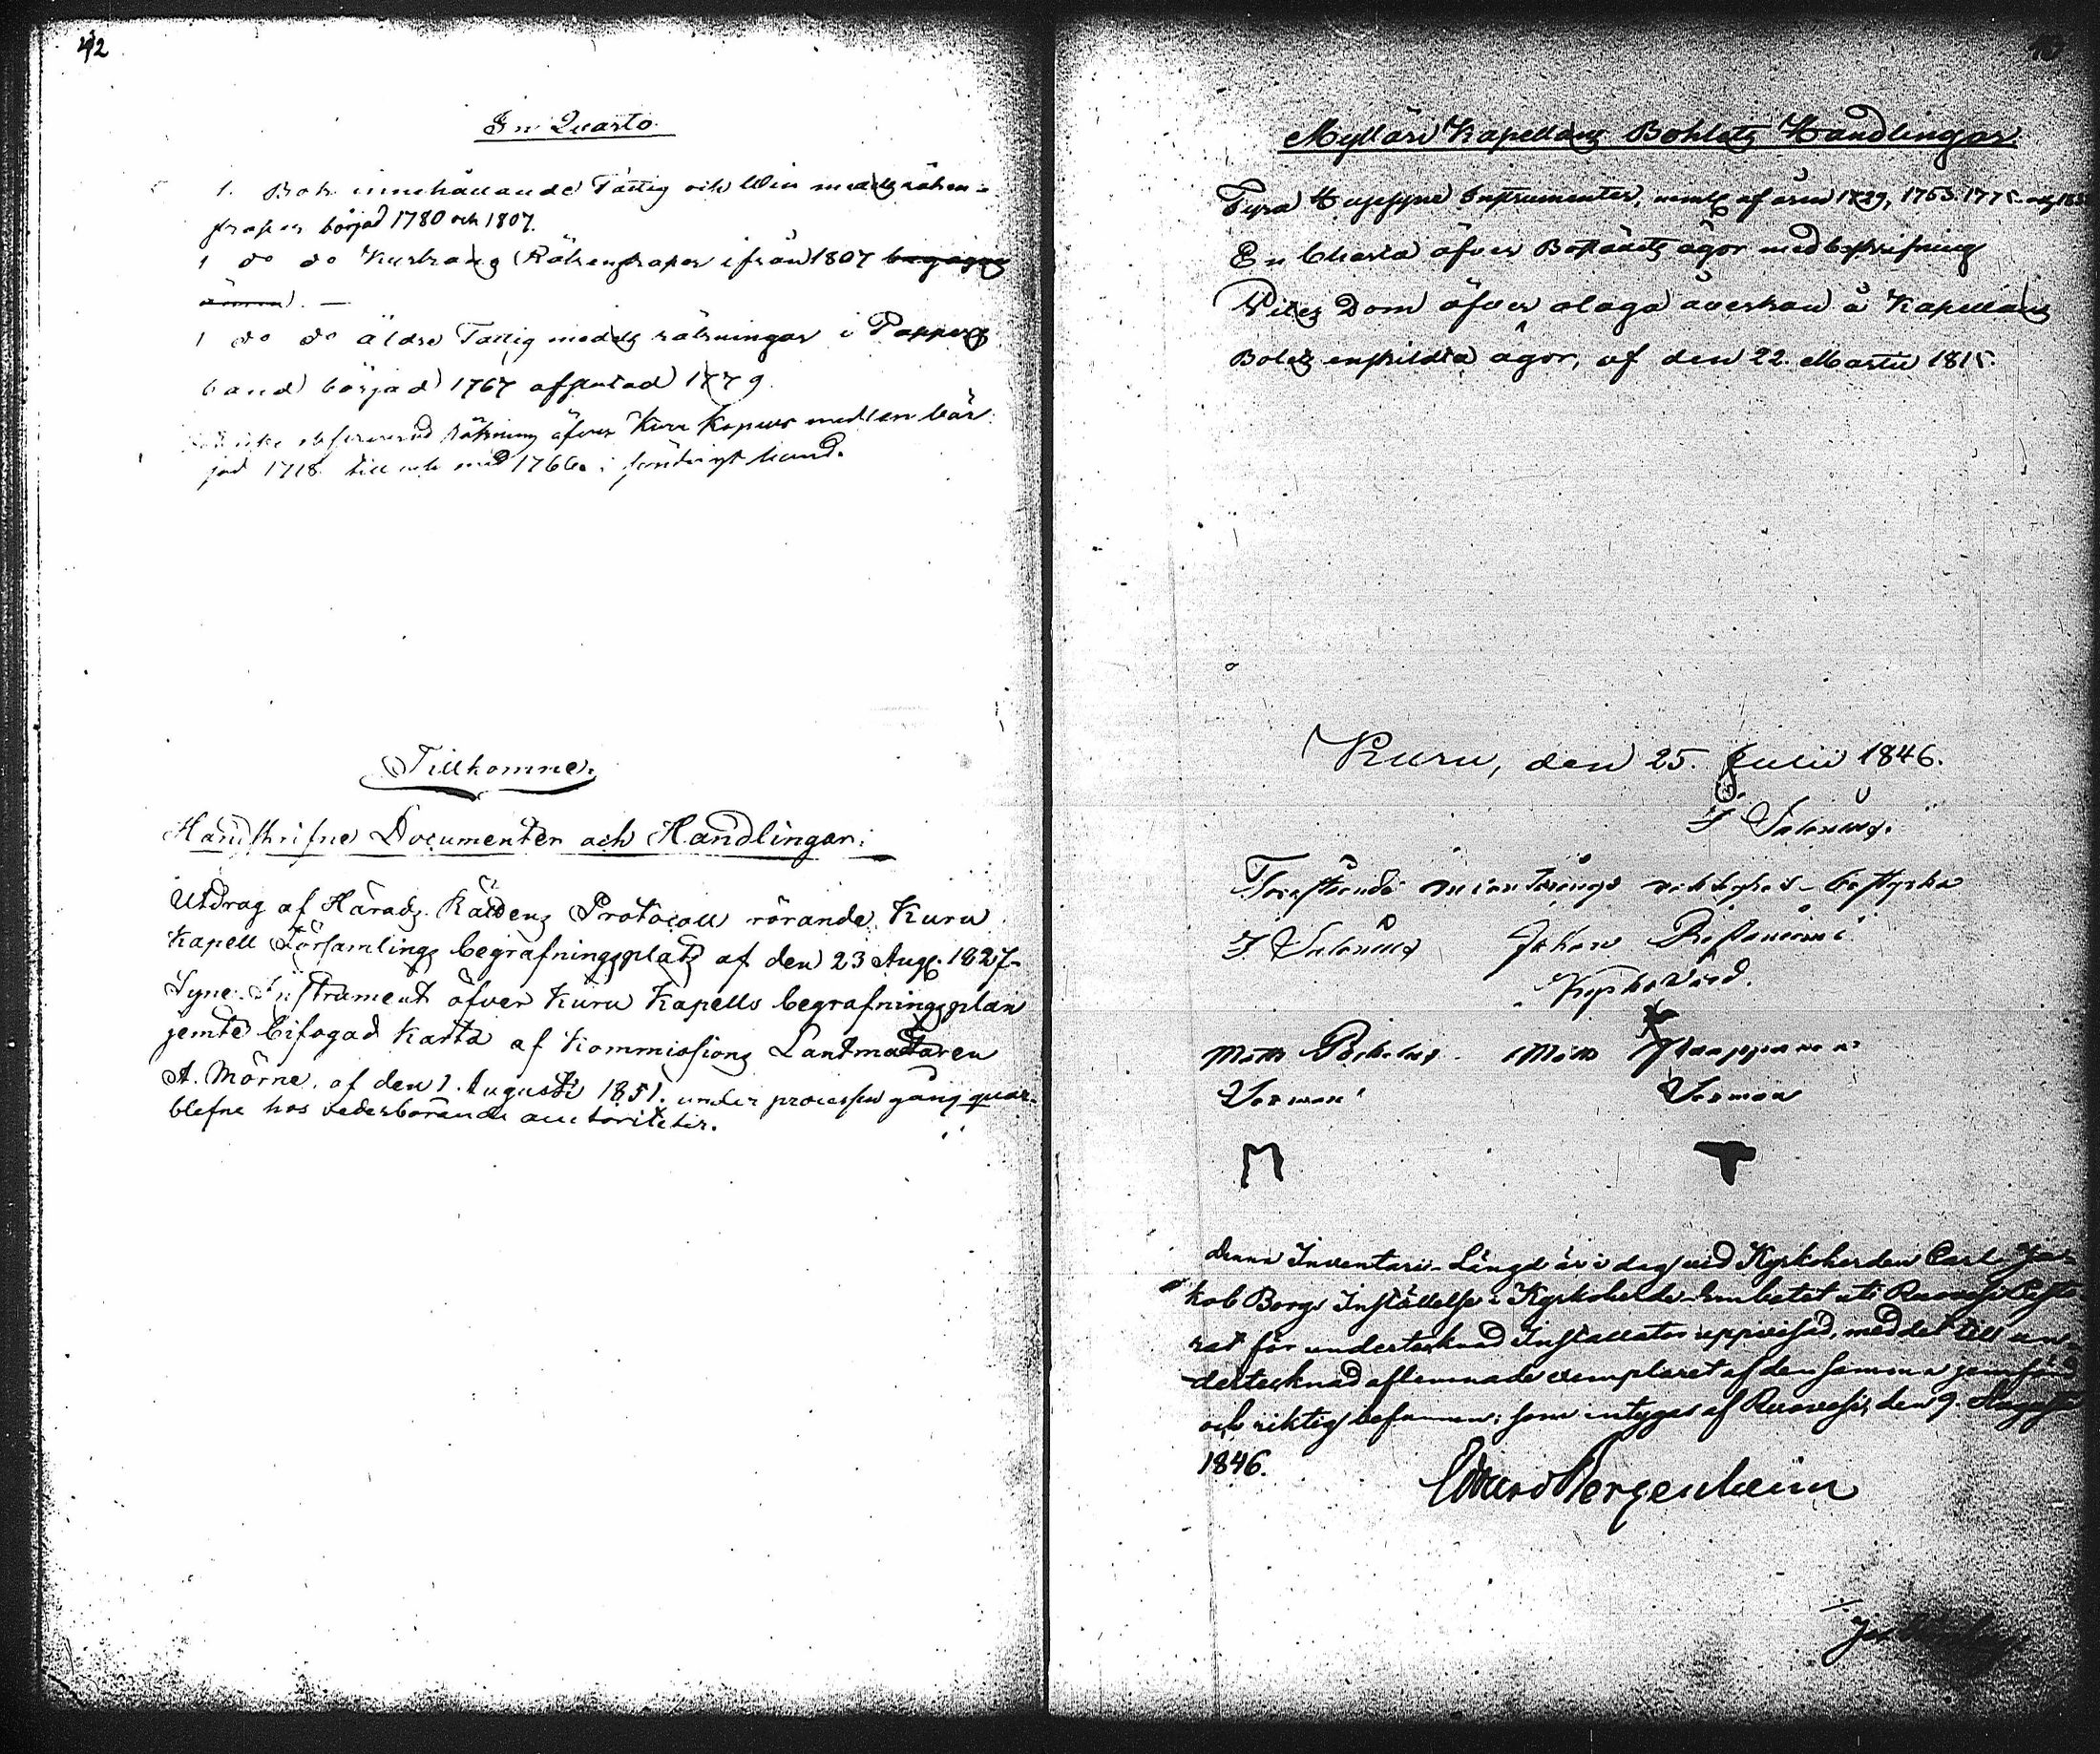 42
In Quarto
1. Bok innehållande Fattig och Win medels räken-
skaper börjad 1780 och 1807.
1 do do Kyrkans Räkenskaper ifrån 1807
1 do do äldre Fattig medels räkningar i Pappers
band börjad 1767 afslutad 1779.
räkning öfver Kuru Kapells medlen bör
jad 1718 till och med 1766 i sönderigt band.
Tillkomne.
Handskrifne Documenter och Handlingar:
Utdrag af Härads Rättens Protocoll rörande Kuru
Kapell Församlings begrafningsplats af den 23 Aug. 1827.
Syne Instrument öfver Kuru Kapells begrafningsplan
jemte bifogad Karta af Kommissions Lantmätaren
A. Mörne, af den 1. Augusti 1851. under processen gång quar-
blefne hos vederbörande auctoriteter.
Mylläri Kapellans Bohlets Handlingar.
Fyra Husesyne Instrumenter, neml af åren 1729, 1763. 1775 och
En Charta öfver Boställets ägor med beskrifning
Ditos Dom öfver olaga åverkan å Kapellans
Bolets enskildta ägor, af den 22. Martii 1815.
Kuru, den 25. Julii 1846.
F Salenius.
Förestående Inventarings riktighet bestyrka
F Salenius Johan
Kyrkovärd.
Matts Matts
Sexman Sexman
Denna Inventarii-Längd är i dag vid Kyrkoherden Carl Ja-
kob Borgs Inställelse i Kyrkoherde-Embetet uti Ruovesi Pasto
rat för undertecknad Installator uppvisad, med det till un-
dertecknad aflemnade exemplaret af den samma jemförd
och riktig befunnen; som intygas af Ruovesi, den 9. Augusti
1846.
Edvard Bergenheim